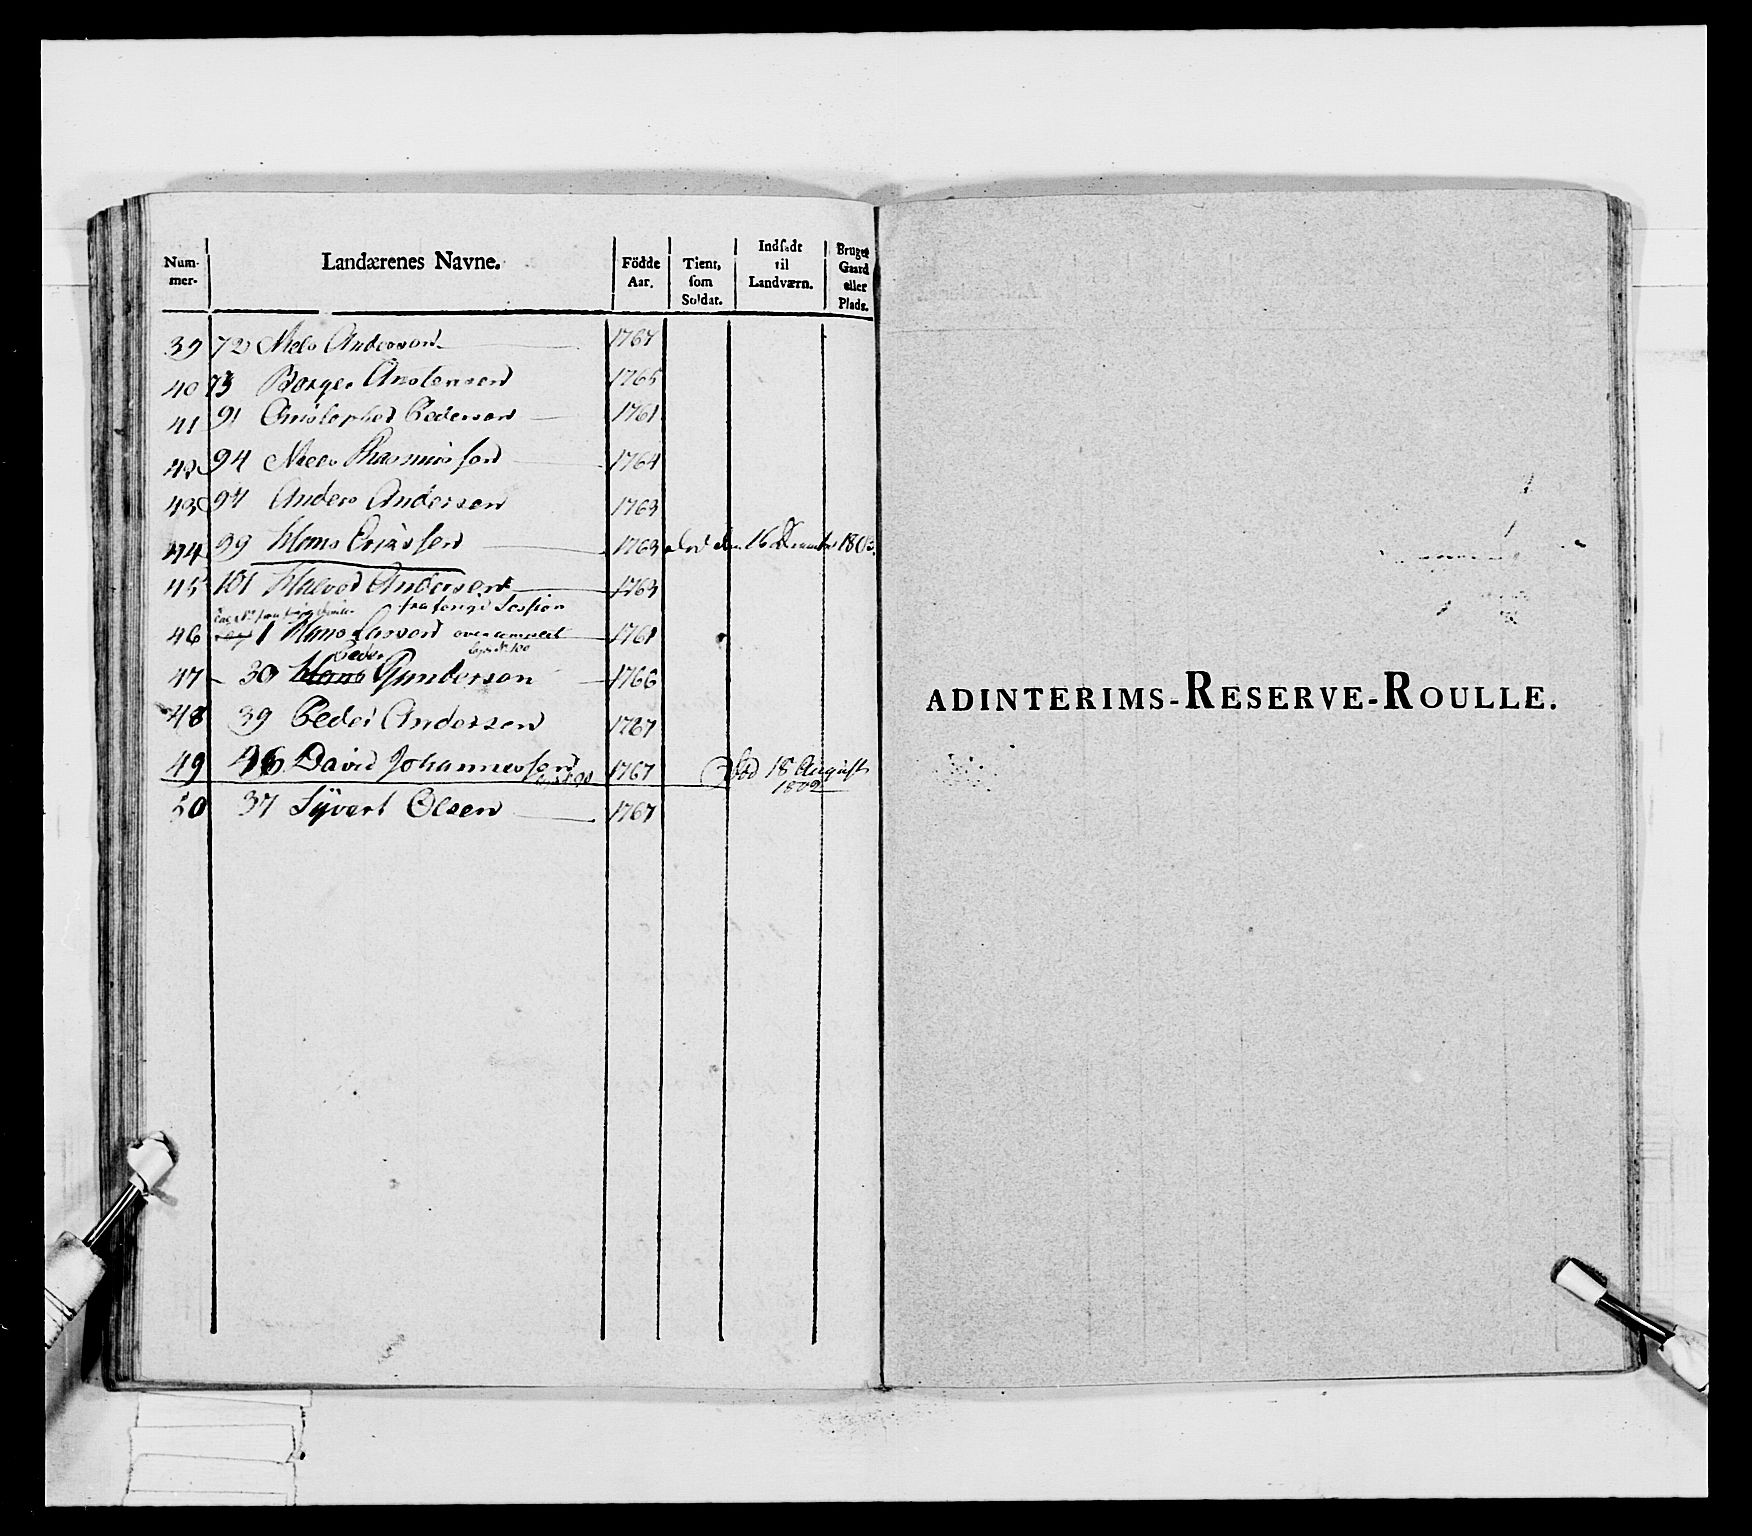 Num-mer. Landærenes Navne. Födde Aar. Tient, som Soldat. Indsadt til Landværn. Bruger Gaard eller Plads.
39 72 Niels Anderson 1767
40 73 Borger Anstensen 1765
41 91 Christopher Pederson 1761
42 94 Niels Rasmusson 1764
43 97 Anders Andersen 1763
44 99 Hans Erikssen 1763 død den 16 December 180
45 101 Halvor Andersen 1763
fra forrige Session
46 1 Hans Larsen overcompleet 1761
Peder
47 30 Hans Gundersen 1766
48 39 Peder Andersen 1767
49 46 David Johannessen 1767 Død 18 August
1809
50 37 Syvert Olsen 1767
ADINTERIMS-RESERVE-ROULLE.